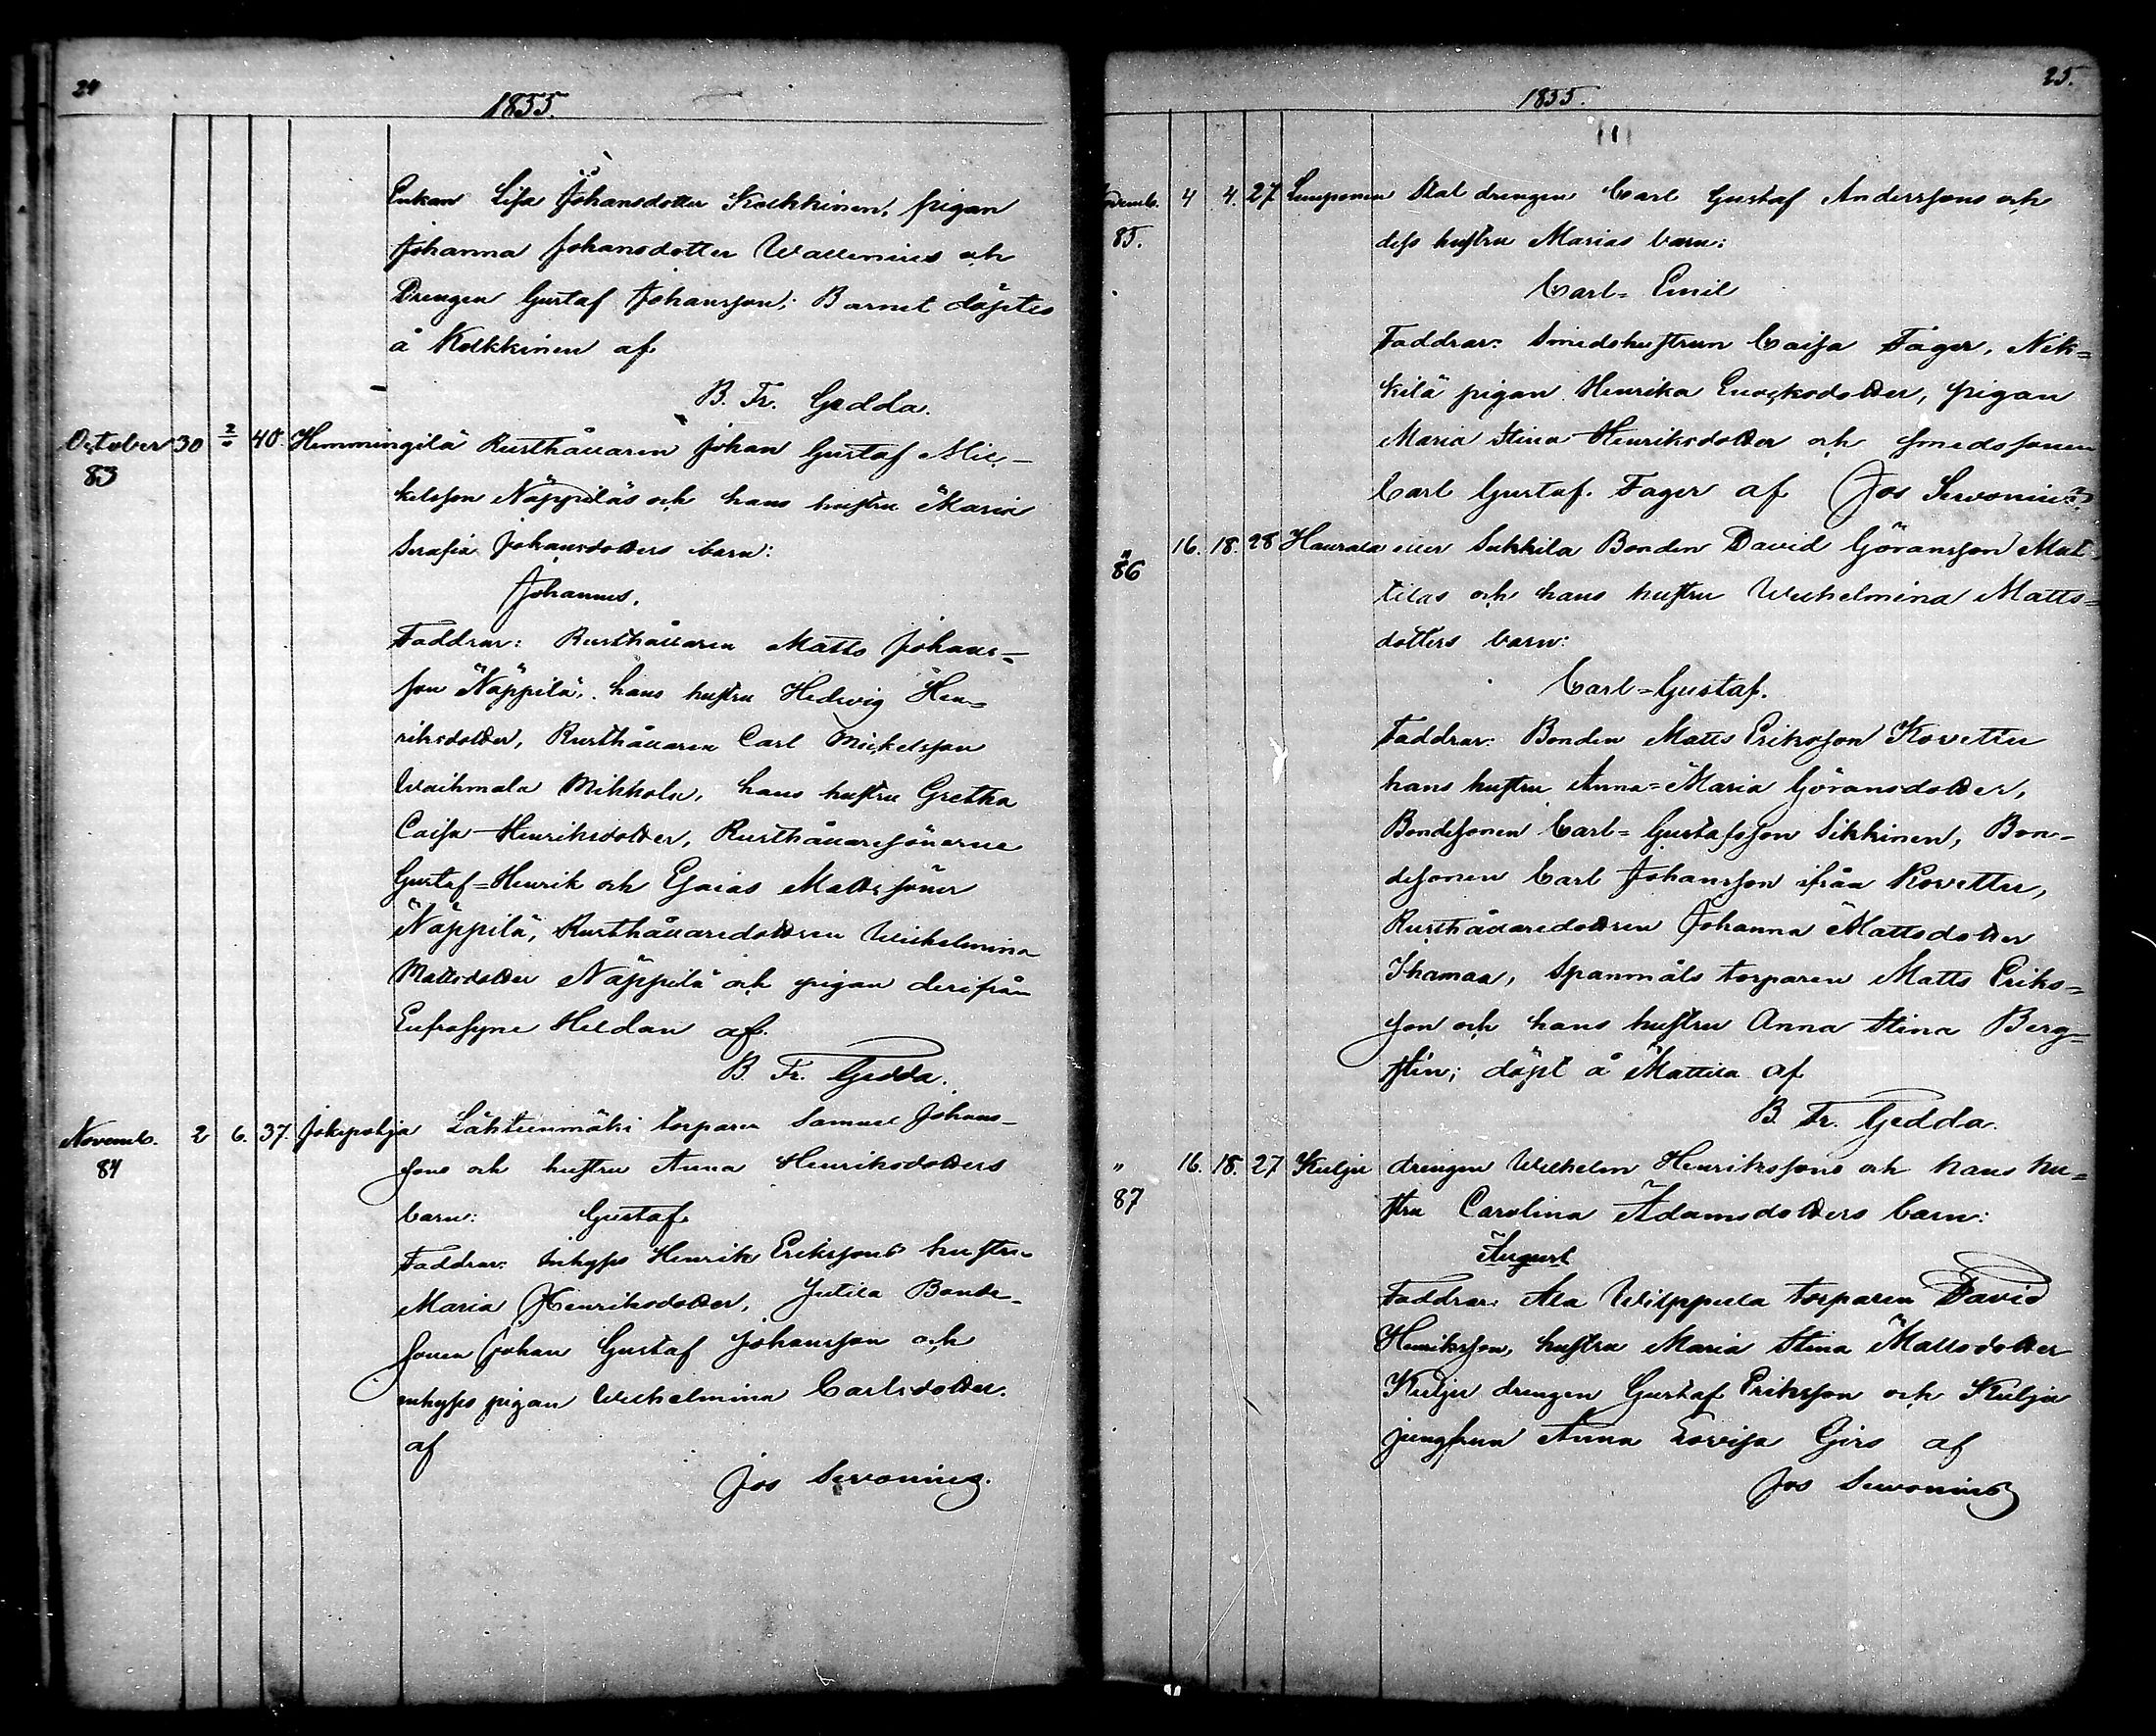 24
1855.
Enkan Lisa Johansdotter Kolkkinen, pigan
Johanna Johansdotter Wallenius och
Drengen Gustaf Johansson; Barnet döptes
å Kolkkinen af
B. Fr. Gedda.
October 30 2 40. Hemmingilä Rusthållaren Johan Gustaf Mic-
83
kelsson Näppiläs och hans hustru Maria
Serafia Johansdotters barn:
Johannes.
Faddrar: Rusthållaren Matts Johans-
son Näppilä, hans hustru Hedvig Hen-
riksdotter, Rusthållaren Carl Mickelsson
Waihmala Mikkola, hans hustru Gretha
Caisa Henriksdotter, Rusthållaresönerne
Gustaf-Henrik och Esaias Mattssöner
Näppilä, Rusthållaredottren Wilhelmina
Mattsdotter Näppilä och pigan derifrån
Eufrosyne Heldan af
B. Fr. Gedda.
Novemb. 2 6. 37. Jokipohja Lähteenmäki torparen Samuel Johans-
84
sons och hustru Anna Henriksdotters
barn: Gustaf
Faddrar: inhyses Henrik Erikssons hustru
Maria Henriksdotter, Jutila Bonde-
sonen Johan Gustaf Johansson och
inhyses pigan Wilhelmina Carlsdotter.
af
Jos Sevonius.
25.
1855.
Novemb. 4 4. 27 Lemponen Stal drengen Carl Gustaf Anderssons och
85.
dess hustru Marias barn:
Carl-Emil
Faddrar: Smedshustrun Caisa Fager, Nik-
kilä pigan Henrika Enocksdotter, pigan
Maria Stina Henriksdotter och smedssonen
Carl Gustaf Fager af Jos Sevonius.
" 16. 18. 28 Haurala eller Sukkila Bonden David Göransson Mat-
86
tilas och hans hustru Wilhelmina Matts-
dotters barn:
Carl-Gustaf.
Faddrar: Bonden Matts Eriksson Kovettu
hans hustru Anna-Maria Göransdotter,
Bondesonen Carl-Gustafsson Sikkinen, Bon-
desonen Carl Johansson ifrån Kovettu,
Rusthållaredottren Johanna Mattsdotter
Ihamaa, Spanmåls torparen Matts Eriks-
son och hans hustru Anna Stina Berg-
stén; döpt å Mattila af
B. Fr. Gedda.
" 16. 18. 27 Kulju drengen Wilhelm Henrikssons och hans hu-
87
stru Carolina Adamsdotters barn:
August
Faddrar: Ala Wilppula torparen David
Henriksson, hustru Maria Stina Mattsdotter
Kulju drengen Gustaf Eriksson och Kulju
jungfrun Anna Lovisa Girs af
Jos Sevonius